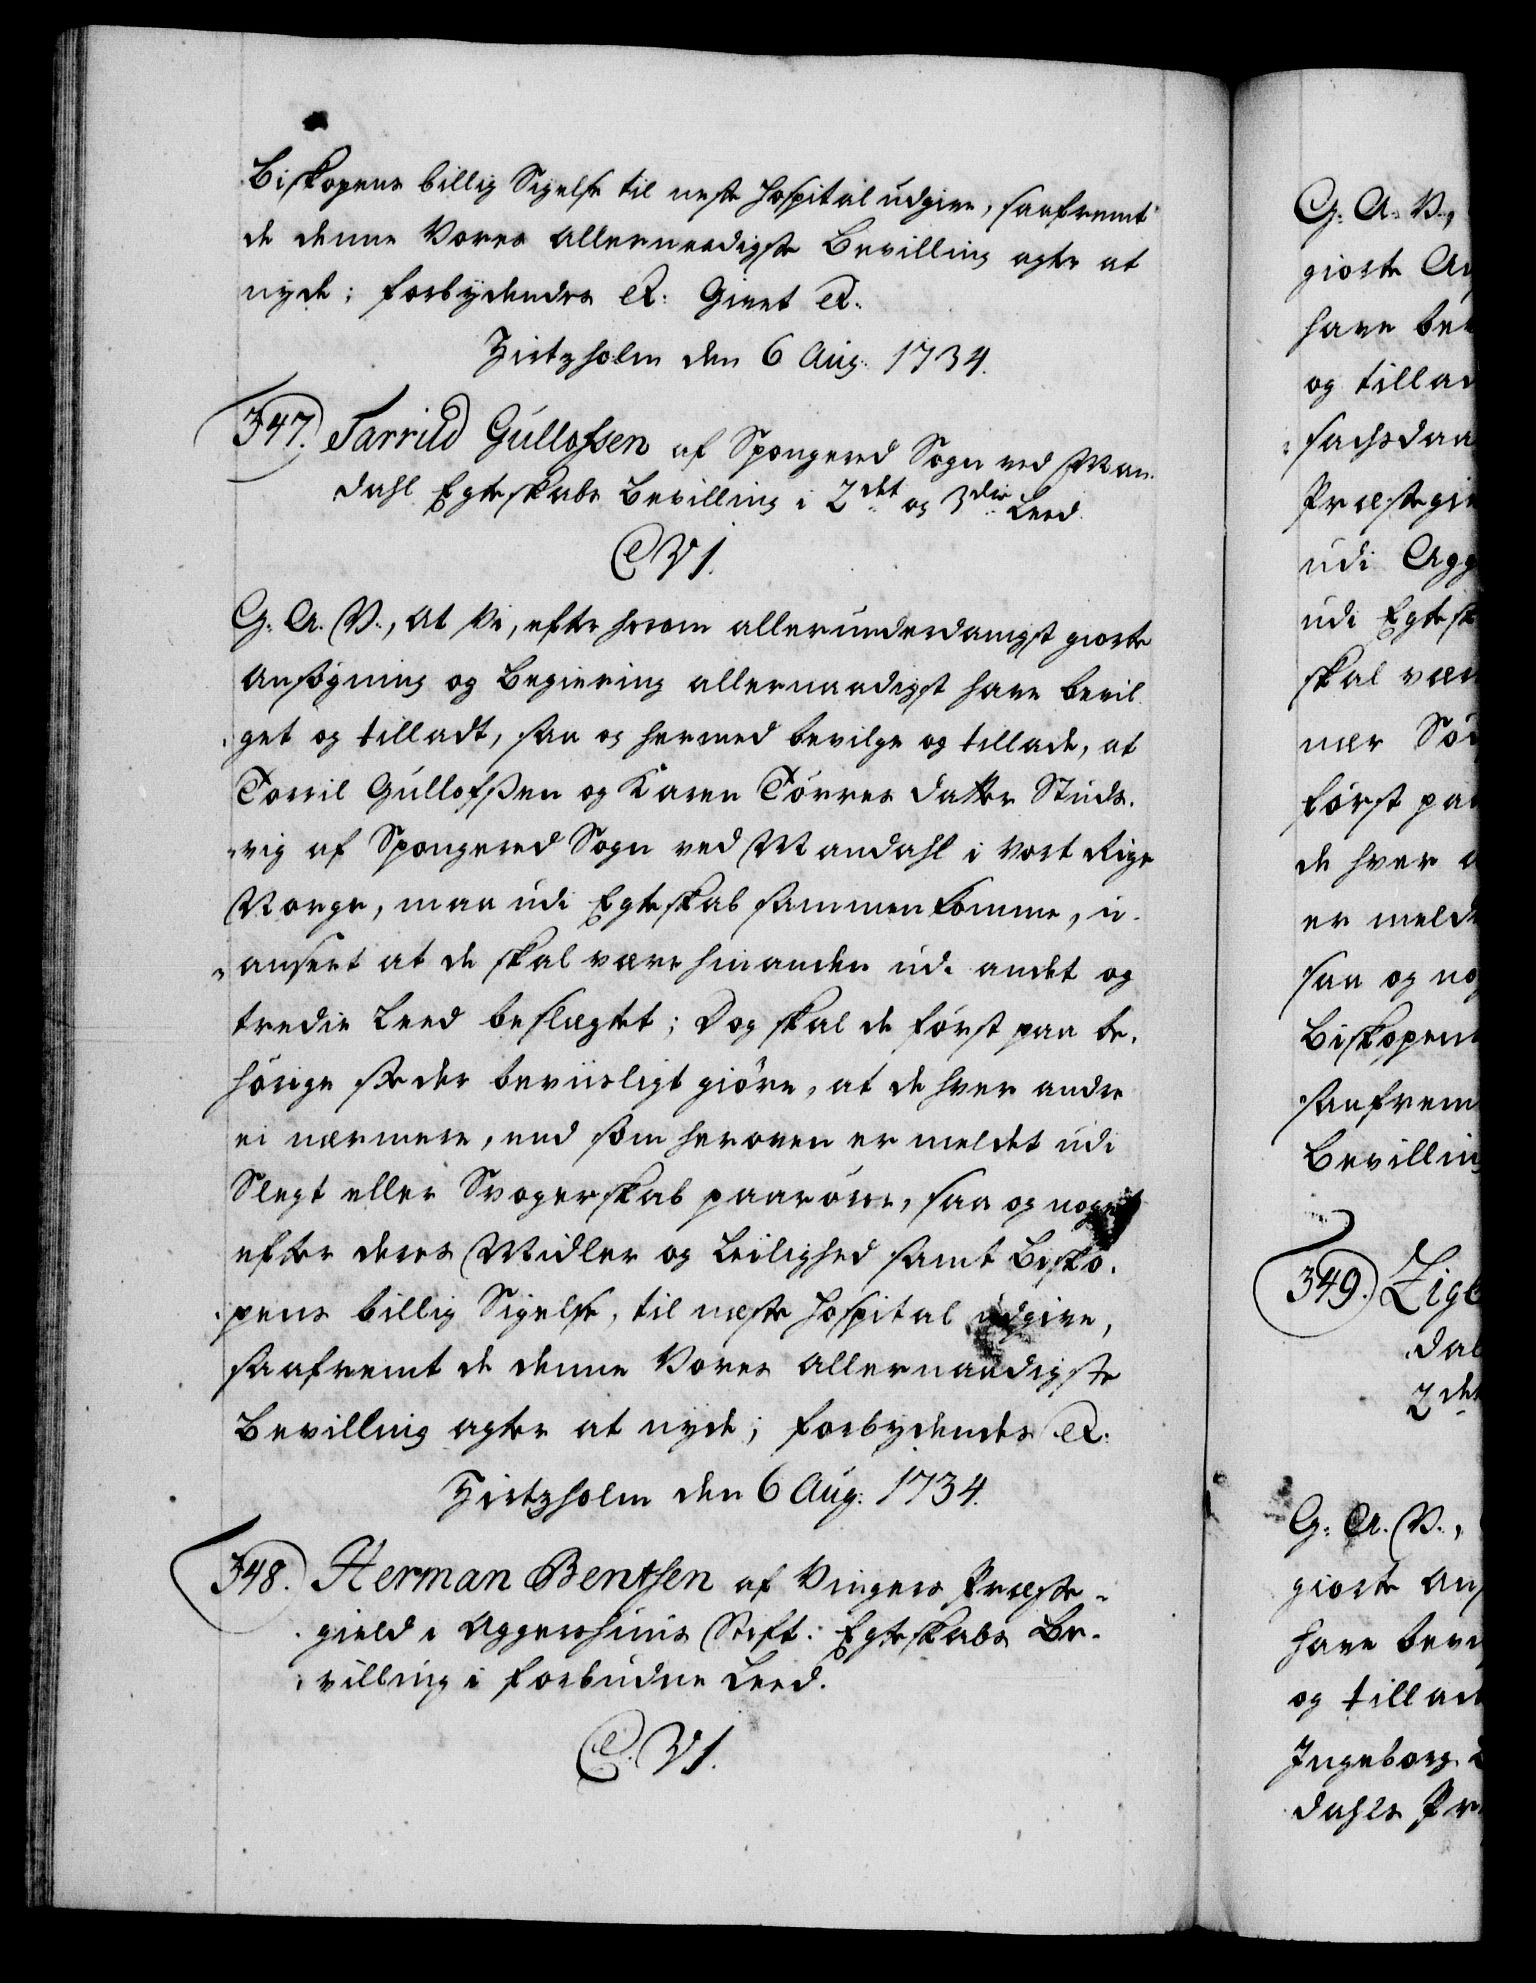 Biskopens billig Sigelse til neste Hospital udgive, saafremt
de denne Vores allernaadigste Bevilling agte at
nyde; forbydendes &. Givet &.
Hirtzholm den 6 Aug: 1734.
347. Tarrild Gullofsen af Spongered Sogn ved Man-
dahl Egteskabs Bevilling i 2det og 3die Leed.
C VI.
G: A. V., At Vi, efter herom allerunderdanigst giorte
Ansøgning og Begiering allernaadigst have bevil-
get og tilladt, saa og hermed bevilge og tillade, at
Torril Gullofsen og Karen Torres datter Studs-
vig af Spongered Sogn ved Mandahl i Vort Rige
Norge, maa udi Egteskab sammenkomme, u-
anseet at de skal være hinanden udi andet og
tredie Leed beslægtet; Dog skal de først paa be-
hørige steder beviisligt giøre, at de hver andre
ei nærmere, end som heroven er meldet udi
Slegt eller Svogerskab paarørre, saa og noget
efter deres Midler og Leilighed samt Bisko-
pens billig Sigelse, til næste Hospital udgive,
saafremt de denne Vores allernaadigste
Bevilling agter at nyde; forbydendes &.
Hirtzholm den 6 Aug: 1734.
348. Herman Bentsen af Vingers Præste-
gield i Aggershuus Stift: Egteskabs Be-
villing i forbudne Leed.
C. VI.
G: A. V.,
giorte
have
og
Præstegi
udi
udi
skal
nær
først paa
de hver
er meld
saa og no
Biskopen
saafrem
Bevillin
349.
2det
G: A. V.,
giorte
have
og
Ingeborg
dahls